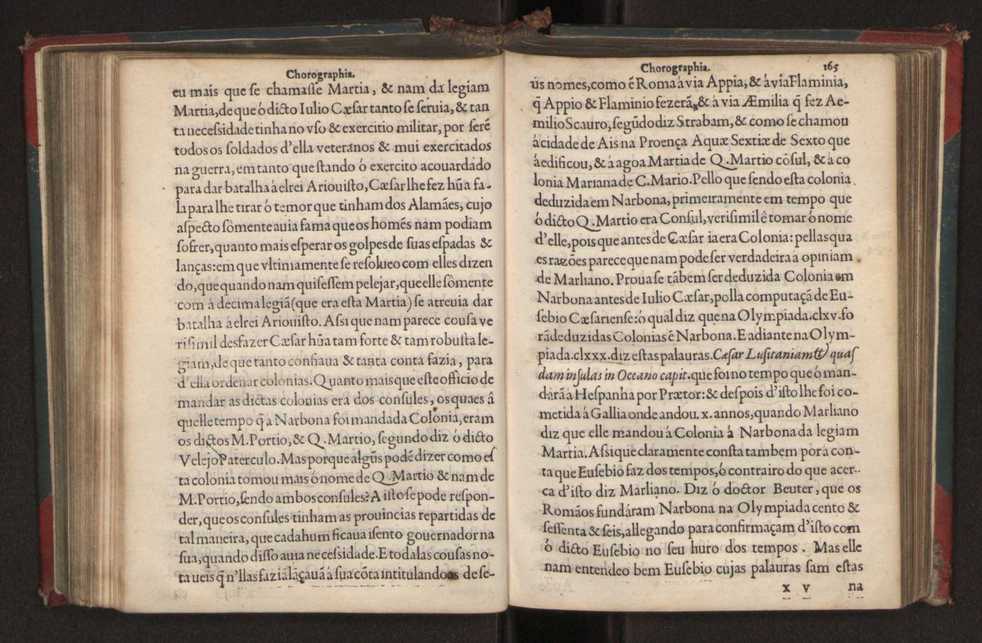 Chorographia.
eu mais que ſe chamaſſe Martia, & nam da legiam
Martia, de que ó dicto Iulio Cæſar tanto ſe ſeruia, & tan
ta neceſsidade tinha no vſo & exercitio militar, por ſerẽ
todos os ſoldados d'ella veteranos & mui exercitados
na guerra, em tanto que ſtando ó exercito acouardado
para dar batalha à elrei Ariouiſto, Cæſar lhe fez hũa fa-
la para lhe tirar ó temor que tinham dos Alamães, cujo
aſpecto ſômente auia fama que os homẽs nam podiam
ſofrer, quanto mais eſperar os golpes de ſuas eſpadas &
lanças: em que vltimamente ſe reſolueo com elles dizen
do, que quando nam quiſeſſem pelejar, que elle ſômente
com á decima legiã (que era eſta Martia) ſe atreuia dar
batalha à elrei Ariouiſto. Aſsi que nam parece couſa ve
riſimil desfazer Cæſar hũa tam forte & tam robuſta le-
giam, de que tanto confiaua & tanta conta fazia, para
d'ella ordenar colonias. Quanto mais que eſte officio de
mandar as dictas colonias era dos conſules, os quaes â
quelle tempo q̃ à Narbona foi mandada Colonia, eram
os dictos M. Portio, & Q. Martio, ſegundo diz ó dicto
Velejo Paterculo. Mas porque algũs podẽ dizer como eſ
ta colonia tomou mais ó nome de Q. Martio & nam de
M. Portio, ſendo ambos conſules? A iſto ſe pode reſpon-
der, que os conſules tinham as prouincias repartidas de
tal maneira, que cada hum ficaua iſento gouernador na
ſua, quando diſſo auia neceſsidade. E todalas couſas no-
taueis q̃ n'llas faziã lãçauã à ſua cõta intitulando as de ſe-
Chorographia. 165
us nomes, como ẽ Roma à via Appia, & à via Flaminia,
q̃ Appio & Flaminio fezerã, & à via Æmilia q̃ fez Ae-
milio Scauro, ſegũdo diz Strabam, & como ſe chamou
à cidade de Ais na Proença Aquæ Sextiæ de Sexto que
à edificou, & à agoa Martia de Q. Martio cõſul, & à co
lonia Mariana de C. Mario. Pello que ſendo eſta colonia
deduzida em Narbona, primeiramente em tempo que
ó dicto Q. Martio era Conſul, veriſimil é tomar ó nome
d'elle, pois que antes de Cæſar ia era Colonia: pellas qua
es razões parece que nam pode ſer verdadeira à opiniam
de Marliano. Proua ſe tãbem ſer deduzida Colonia em
Narbona antes de Iulio Cæſar, polla computaçã de Eu-
ſebio Cæſarienſe: ó qual diz que na Olympiada. clxv. fo
rã deduzidas Colonias ẽ Narbona. E adiante na Olym-
piada. clxxx. diz eſtas palauras. Cæſar Luſitaniam & quaſ
dam inſulas in Oceano capit. que foi no tempo que ó man-
darã à Heſpanha por Prætor: & deſpois d'iſto lhe foi co-
metida á Gallia onde andou. x. annos, quando Marliano
diz que elle mandou à Colonia à Narbona da legiam
Martia. Aſsi que claramente conſta tambem por à con-
ta que Euſebio faz dos tempos, ó contrairo do que acer-
ca d'iſto diz Marliano. Diz ó doctor Beuter, que os
Romãos fundáram Narbona na Olympiada cento &
ſeſſenta & ſeis, allegando para confirmaçam d'iſto com
ó dicto Euſebio no ſeu liuro dos tempos. Mas elle
nam entendeo bem Euſebio cujas palauras ſam eſtas
X v na